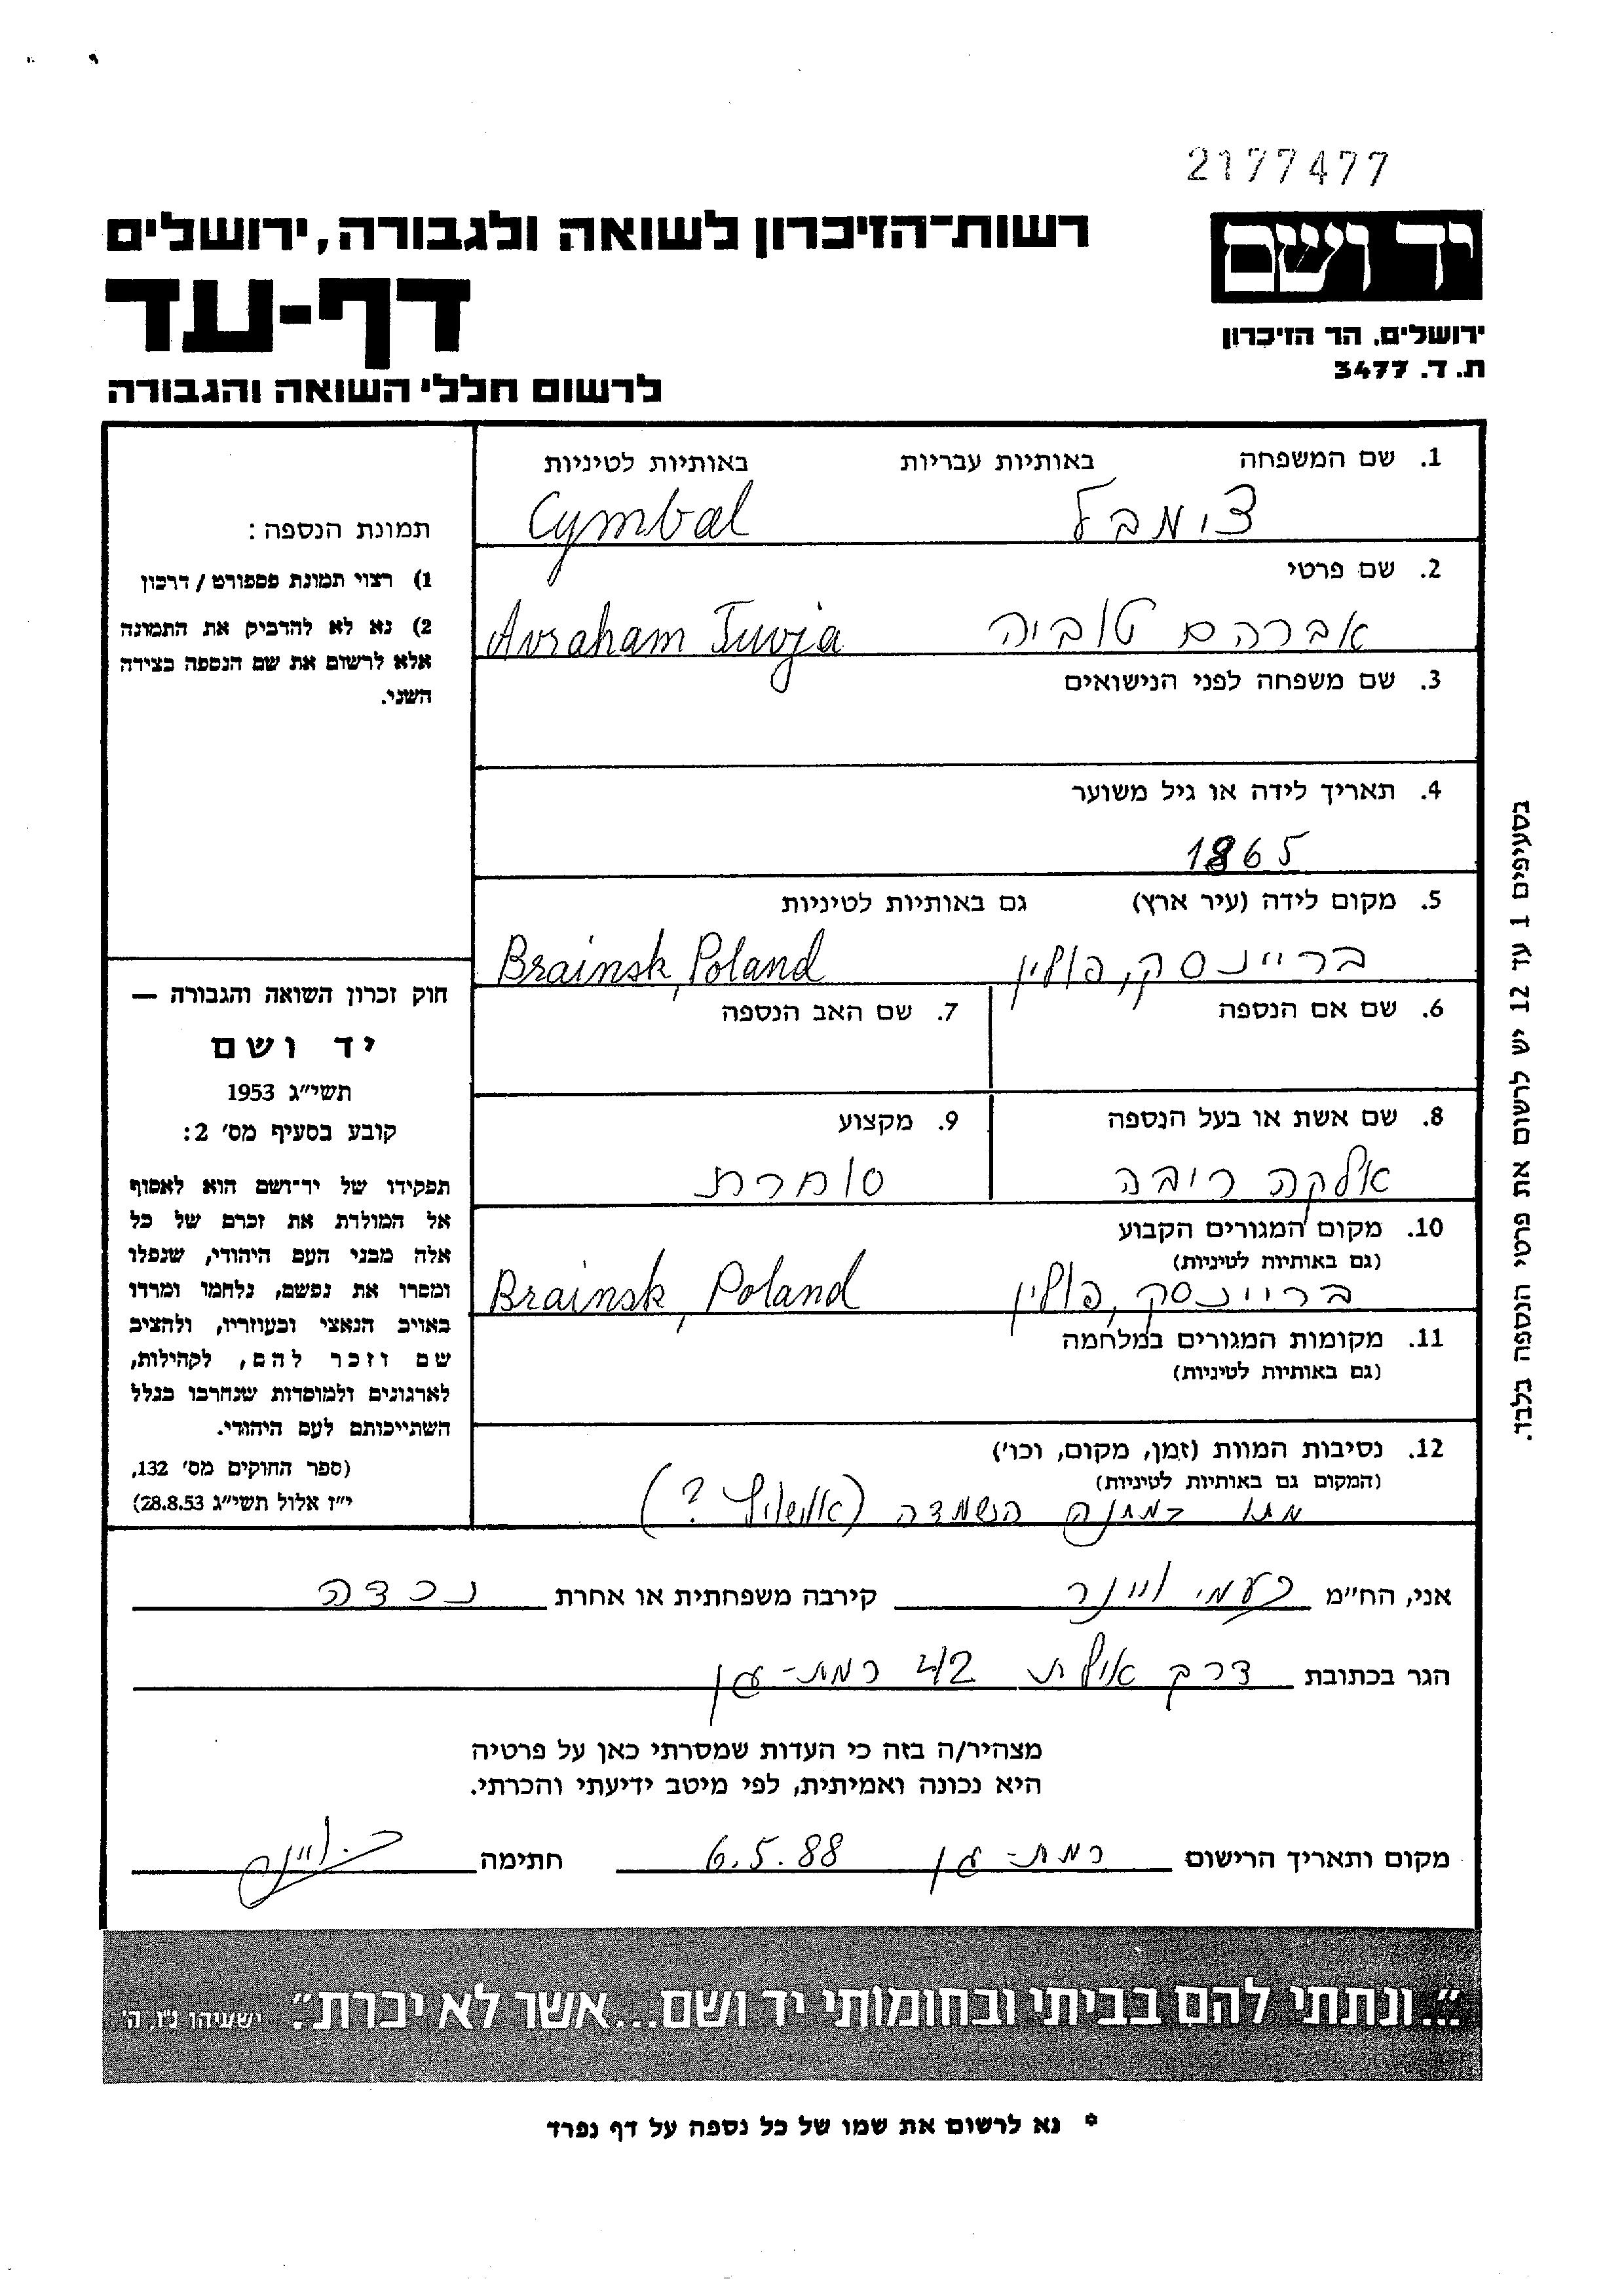 2177477
יד ושם
ירושלים. הר הזיכרון
ת. ד. 3477
רשות־הזיכרון לשואה ולגבורה, ירושלים
דף-עד
לרשום חללי השואה והגבורה
1. שם המשפחה באותיות עבריות באותיות לטיניות
צימבל Cymbal
2. שם פרטי
אברהם טוביה Avraham Tuvja
3. שם משפחה לפני הנישואים
4. תאריך לידה או גיל משוער
1865
5. מקום לידה (עיר ארץ) גם באותיות לטיניות
בריינסק, פולין Brainsk, Poland
6. שם אם הנספה 7. שם האב הנספה
8. שם אשת או בעל הנספה 9. מקצוע
אלקה ריבה סוחרת
10. מקום המגורים הקבוע
(גם באותיות לטיניות)
בריינסק, פולין Brainsk, Poland
11. מקומות המגורים במלחמה
(גם באותיות לטיניות)
12. נסיבות המוות (זמן, מקום, וכו')
(המקום גם באותיות לטיניות)
במחנה השמדה ( ?)
תמונת הנספה:
1) רצוי תמונת פספורט / דרכון
2) נא לא להדביק את התמונה
אלא לרשום את שם הנספה בצידה
השני.
חוק זכרון השואה והגבורה —
יד ושם
תשי״ג 1953
קובע בסעיף מס׳ 2:
תפקידו של יד־ושם הוא לאסוף
אל המולדת את זכרם של כל
אלה מבני העם היהודי, שנפלו
ומסרו את נפשם, נלחמו ומרדו
באויב הנאצי ובעוזריו, ולהציב
שם וזכר להם, לקהילות,
לארגונים ולמוסדות שנחרבו בגלל
השתייכותם לעם היהודי.
(ספר החוקים מס׳ 132,
י״ז אלול תשי״ג 28.8.53)
בסעיפים 1 עד 12 יש לרשום את פרטי הנספה בלבד.
אני, הח״מ נעמי ויינר קירבה משפחתית או אחרת נכדה
הגר בכתובת דרך אילת 42 רמת-גן
מצהיר/ה בזה כי העדות שמסרתי כאן על פרטיה
היא נכונה ואמיתית, לפי מיטב ידיעתי והכרתי.
מקום ותאריך הרישום רמת-גן 6.5.88 חתימה
״...ונתתי להם בביתי ובחומותי יד ושם...אשר לא יכרת״. ישעיהו נ״ו, ה׳
* נא לרשום את שמו של כל נספה על דף נפרד